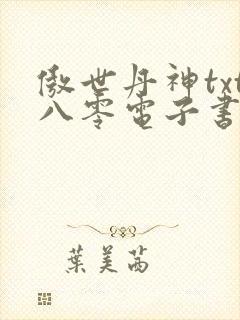 傲世丹神txt
八零電子書
葉美茜